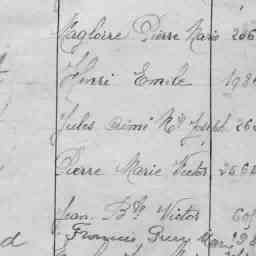 Magloire Pierre Marie 206
Henri Emile 198
Jules Aimé Nel Joseph 262
Pierre Marie Victor 2562
Jean Bte Victor 60
d Francois Marie 98